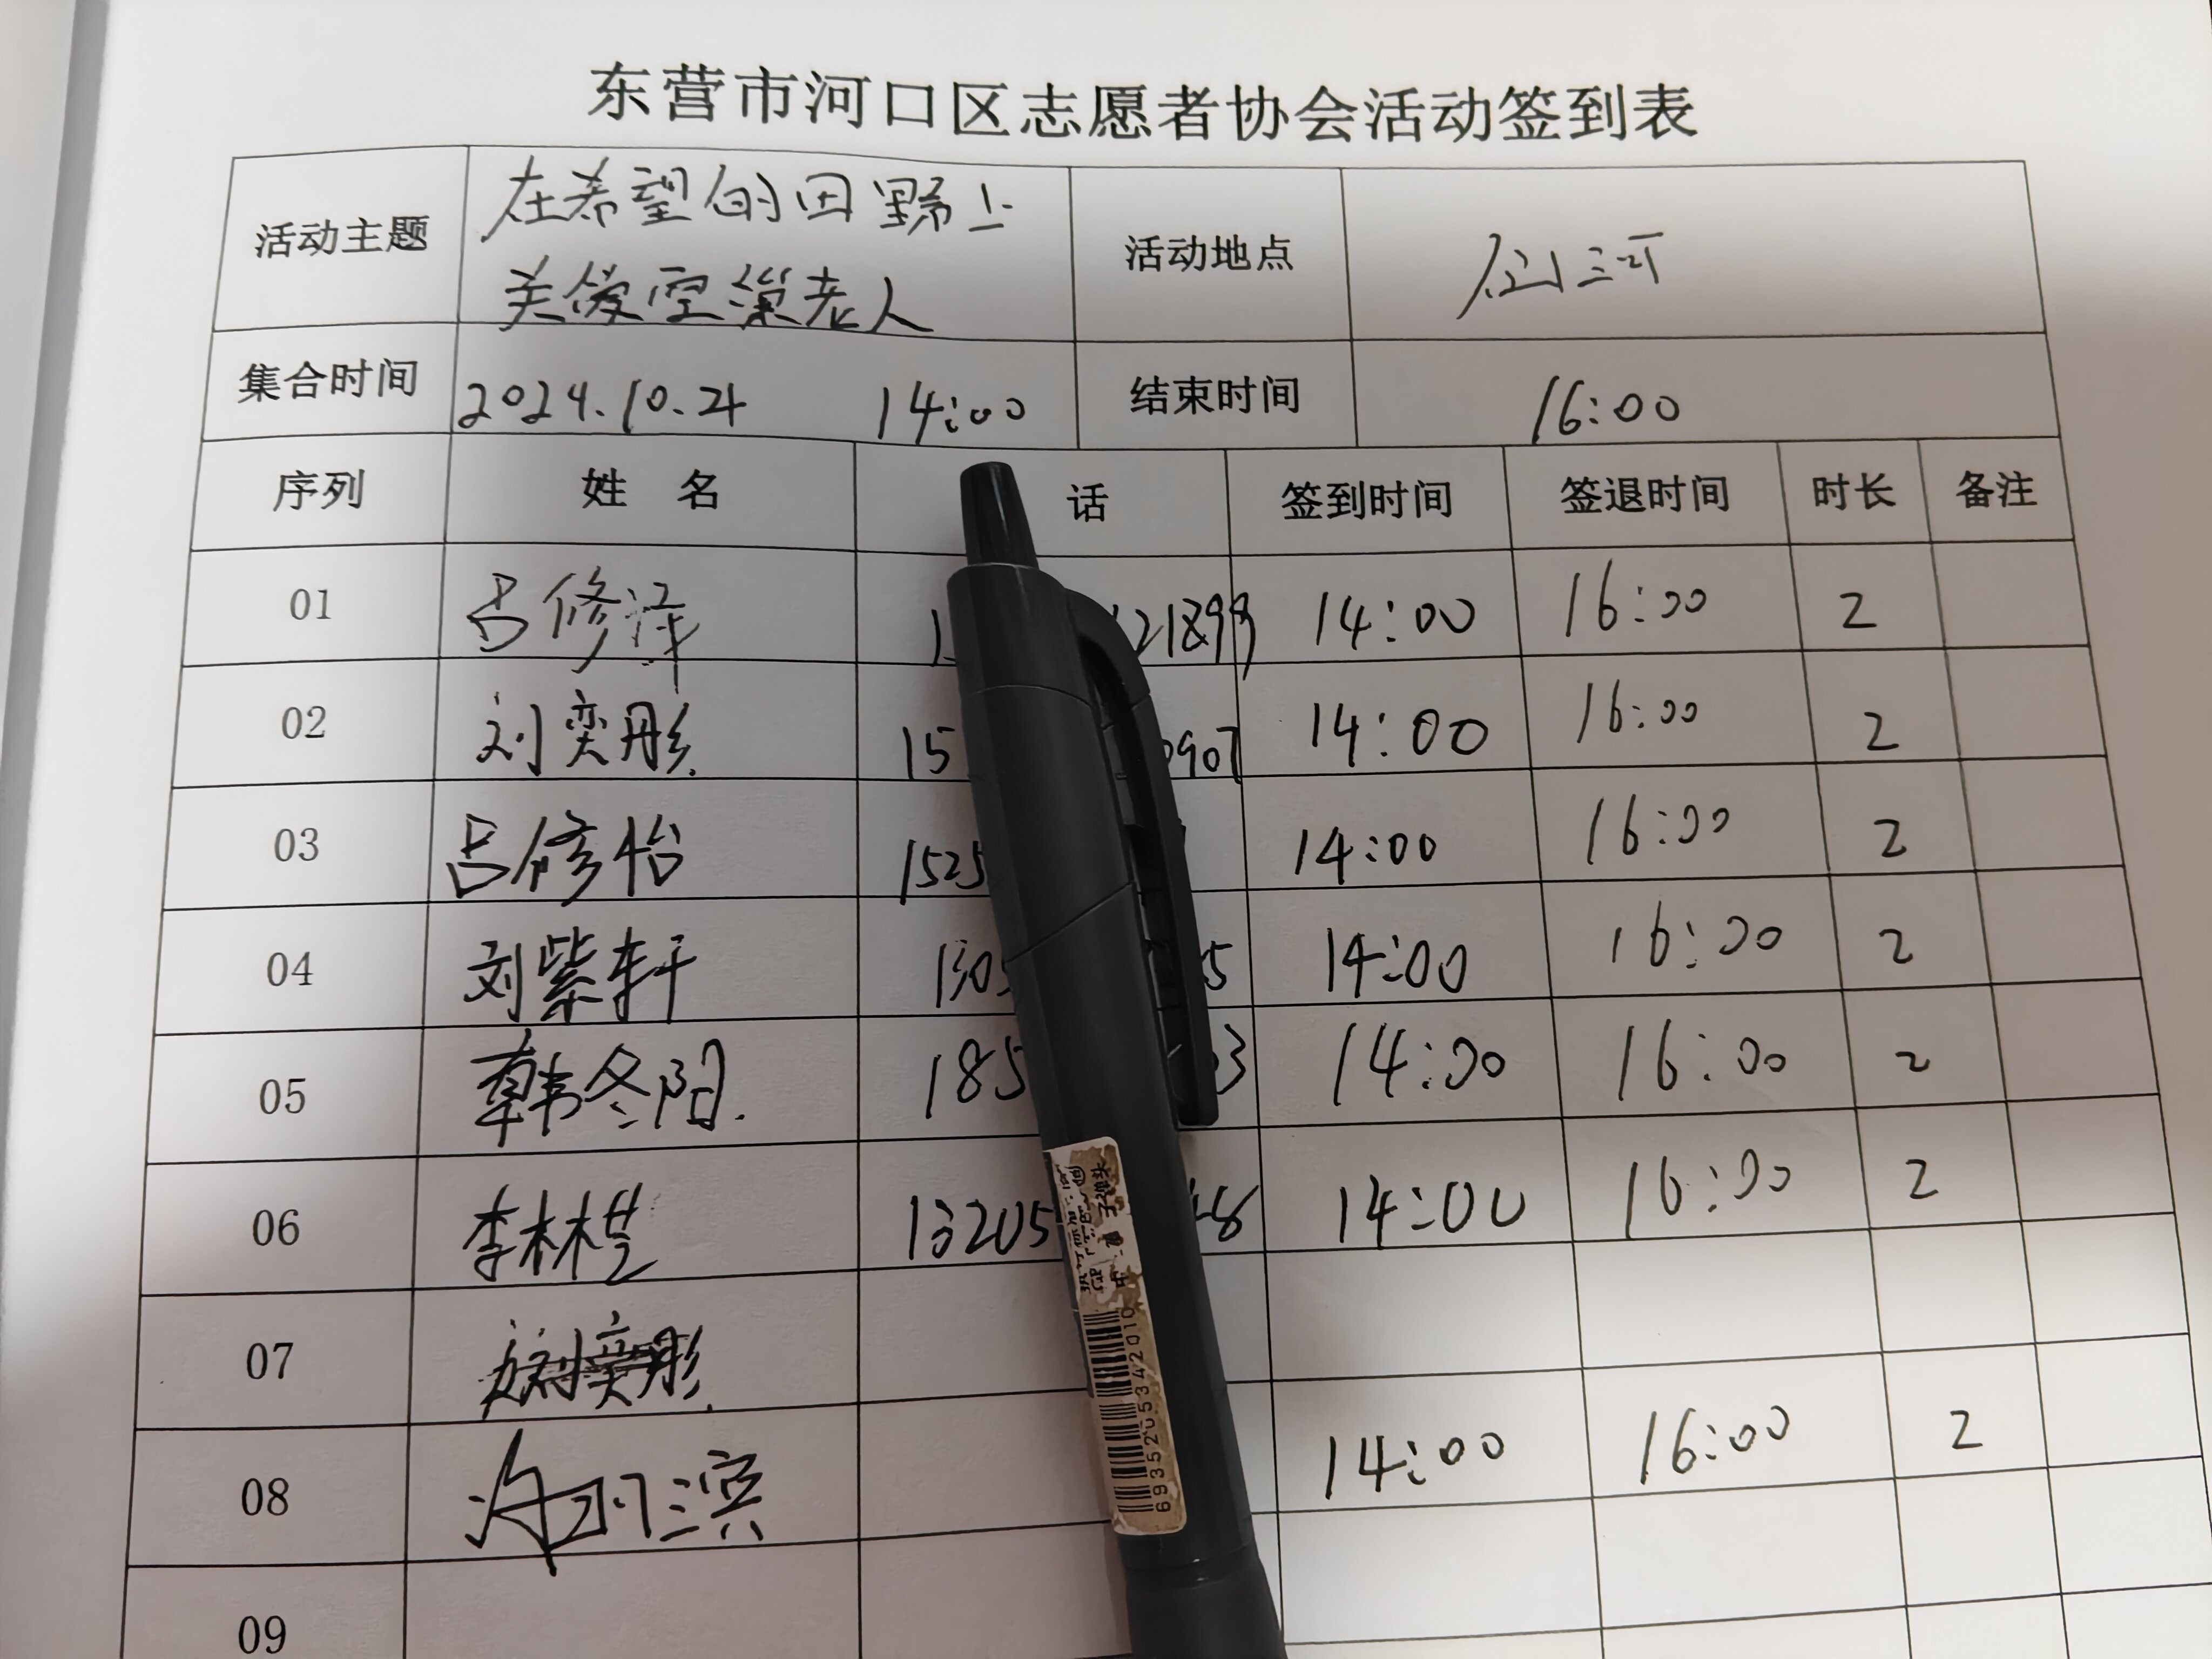 东营市河口区志愿者协会活动签到表
活动主题 在希望的田野上 活动地点
关爱空巢老人
集合时间 2024.10.21 14:00 结束时间 16:00
序列 姓 名 话 签到时间 签退时间 时长 备注
01 吕修泽 1 21899 14:00 16:00 2
02 刘奕彤 15 0907 14:00 16:00 2
03 吕修怡 1525 14:00 16:00 2
04 刘紫轩 1305 5 14:00 16:00 2
05 韩冬阳 185 3 14:00 16:00 2
06 李林芝 13205 48 14:00 16:00 2
07
08 14:00 16:00 2
09
6935205342010